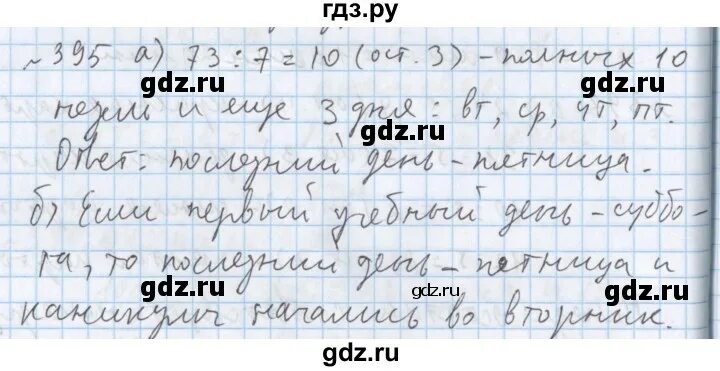 гдз.ру
№395 а) 73 : 7 = 10 (ост. 3) - полных 10
gdz.ru gdz.ru
недель и еще 3 дня : вт, ср, чт, пт.
gdz.ru gdz.ru
Ответ: последний день - пятница.
б) Если первый учебный день - суббо-
gdz.ru gdz.ru
та, то последний день - пятница и
gdz.ru gdz.ru gdz.ru
каникулы начались во вторник.
gdz.ru